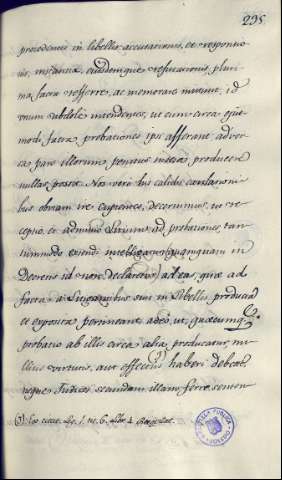 295
procedentis in libellis accusationis, et responsio
nis, instantia, eiusdemque refutationis, pluri
ma facta refferre, ac memorare nituntur, id
unum subdole intendentes, ut cum circa ejus
modi facta probationes ipsi afferant, adver
sa pars illorum penitus inscia producere
nullas possit. Nos vero his calidis cavilationi
bus obviam ire cupientes, decernimus, ut re
ceptio, et admissio partium ad probationes, tan
tummodo extendi intelligatur (quamquam in
Decretis id non declaretur) ad ea, quæ ad
facta a litigantibus sui in Libellis producta
et exposita pertineant adeo ut, quæcumque
probatio ab illis circa alia producatur, nul
lius virtutis, aut effectus (3) haberi debeat,
neque Judices secundum illam ferre senten
(3)